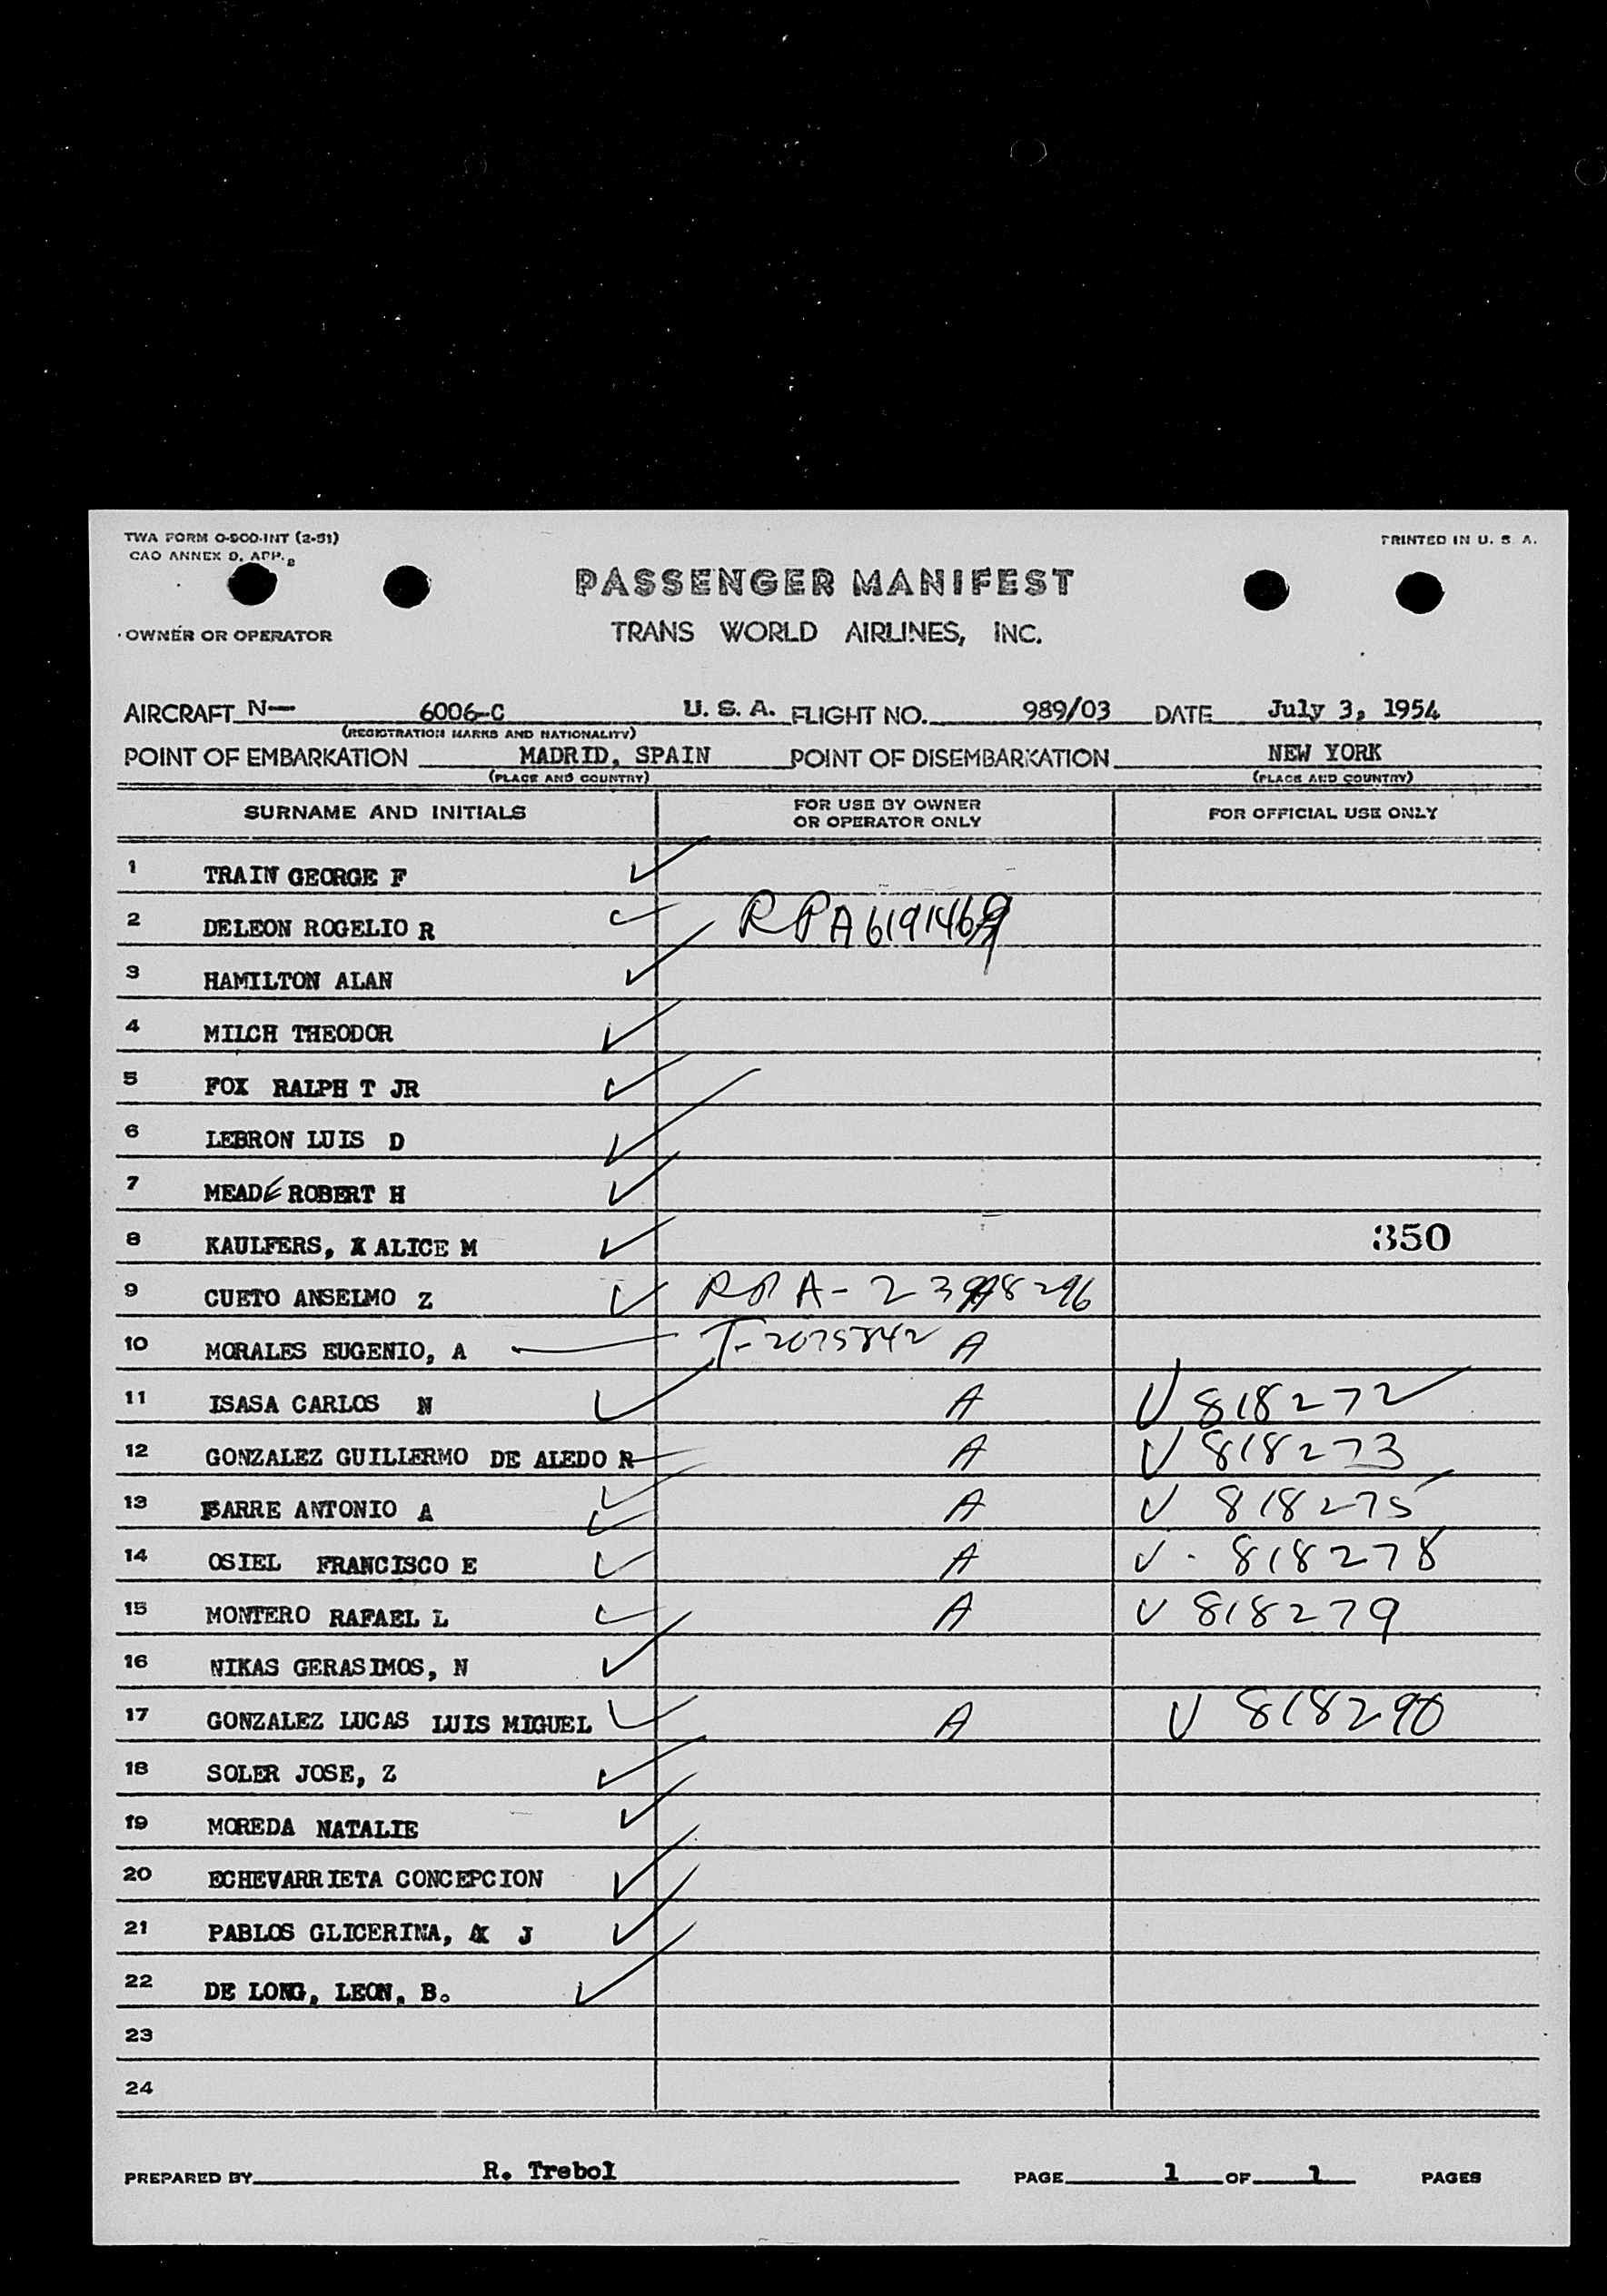 TWA FORM O-900-INT (2-51)
PRINTED IN U. S. A.
CAO ANNEX 9, APP. 2
PASSENGER MANIFEST
OWNER OR OPERATOR
TRANS WORLD AIRLINES, INC.
AIRCRAFT N— 6006-C U. S. A. FLIGHT NO. 989/03 DATE July 3, 1954
(REGISTRATION MARKS AND NATIONALITY)
POINT OF EMBARKATION MADRID, SPAIN POINT OF DISEMBARKATION NEW YORK
(PLACE AND COUNTRY) (PLACE AND COUNTRY)
SURNAME AND INITIALS FOR USE BY OWNER OR OPERATOR ONLY FOR OFFICIAL USE ONLY
1 TRAIN GEORGE F
2 DELEON ROGELIO R RPA 6191469
3 HAMILTON ALAN
4 MILCH THEODOR
5 FOX RALPH T JR
6 LEBRON LUIS D
7 MEADE ROBERT H
8 KAULFERS, ALICE M 350
9 CUETO ANSELMO Z
10 MORALES EUGENIO, A T-2075842 A
11 ISASA CARLOS N A V 818272
12 GONZALEZ GUILLERMO DE ALEDO R A V 818273
13 BARRE ANTONIO A A V 818275
14 OSIEL FRANCISCO E A V. 818278
15 MONTERO RAFAEL L A V 818279
16 NIKAS GERASIMOS, N
17 GONZALEZ LUCAS LUIS MIGUEL A V 818290
18 SOLER JOSE, Z
19 MOREDA NATALIE
20 ECHEVARRIETA CONCEPCION
21 PABLOS GLICERINA, J
22 DE LONG, LEON, B.
23
24
PREPARED BY R. Trebol PAGE 1 OF 1 PAGES